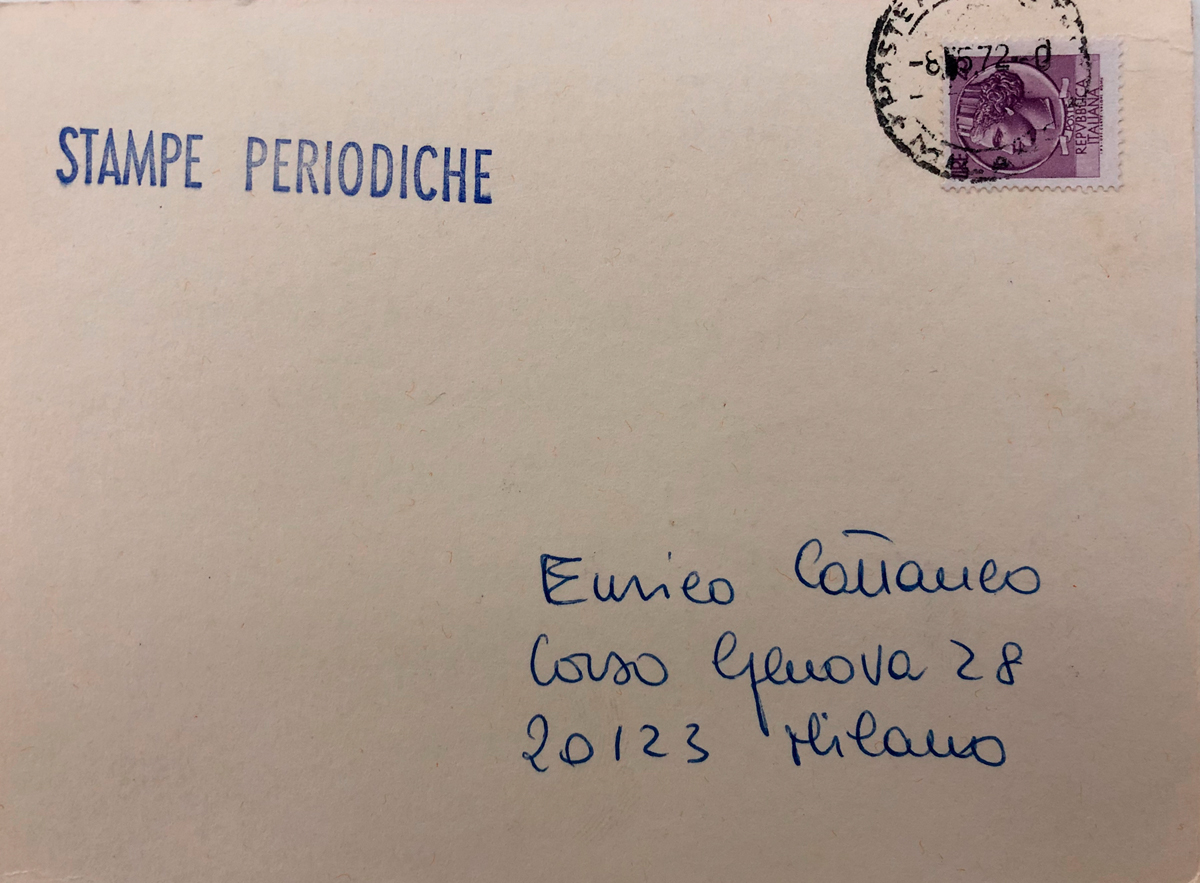 STAMPE PERIODICHE
-8.5.72
POSTE
REPVBBLICA
ITALIANA
Enrico Cattaneo
Corso Genova 28
20123 Milano